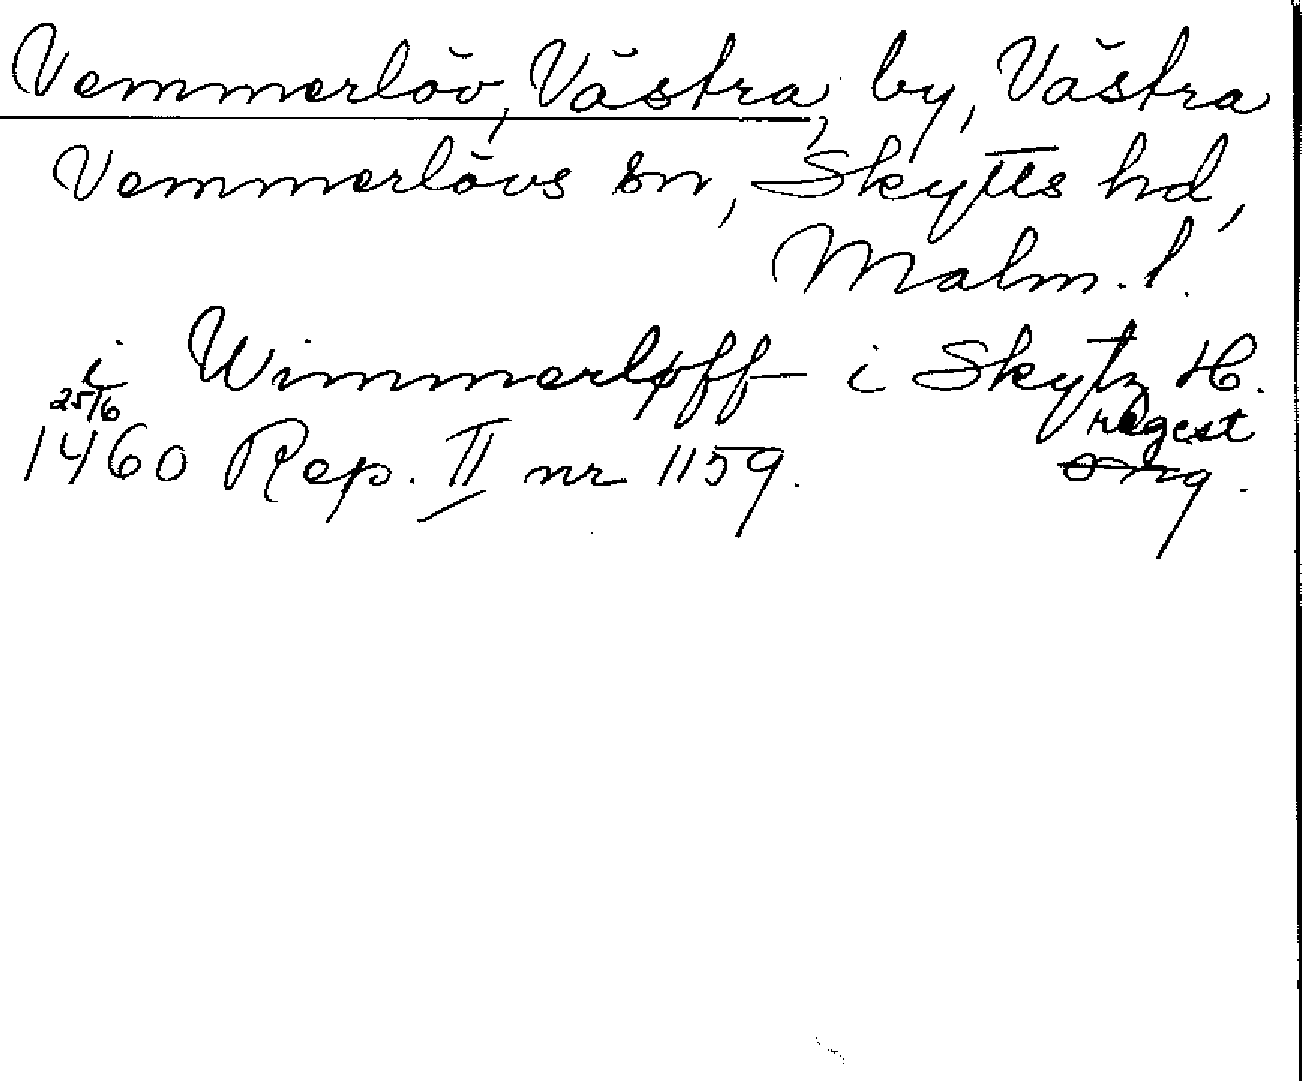 Vemmerlöv, Västra, by, Västra
Vemmerlövs sn, Skytts hd,
Malm. l.
i Wimmerløff i Skytz H.
25/6
1460 Rep. II nr 1159. regest
orig.